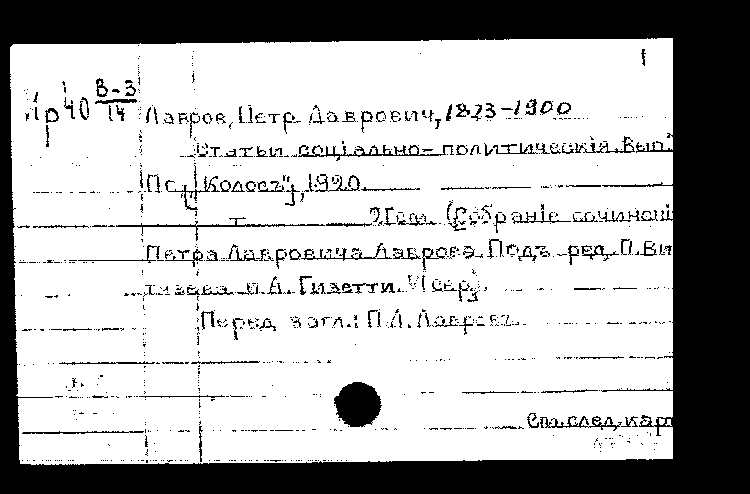 1
Ир40 В-3/14
Лавров, Петр Лаврович, 1823-1900
Статьи соціально-политическія. Вып.
Пг., "Колосъ", 1920.
т. (Собраніе сочинені
Петра Лавровича Лаврова. Подъ ред. П. Ви
тязева и А. Гизетти. VI сер.).
Перед загл.: П.Л. Лавровъ.
См. след. карт